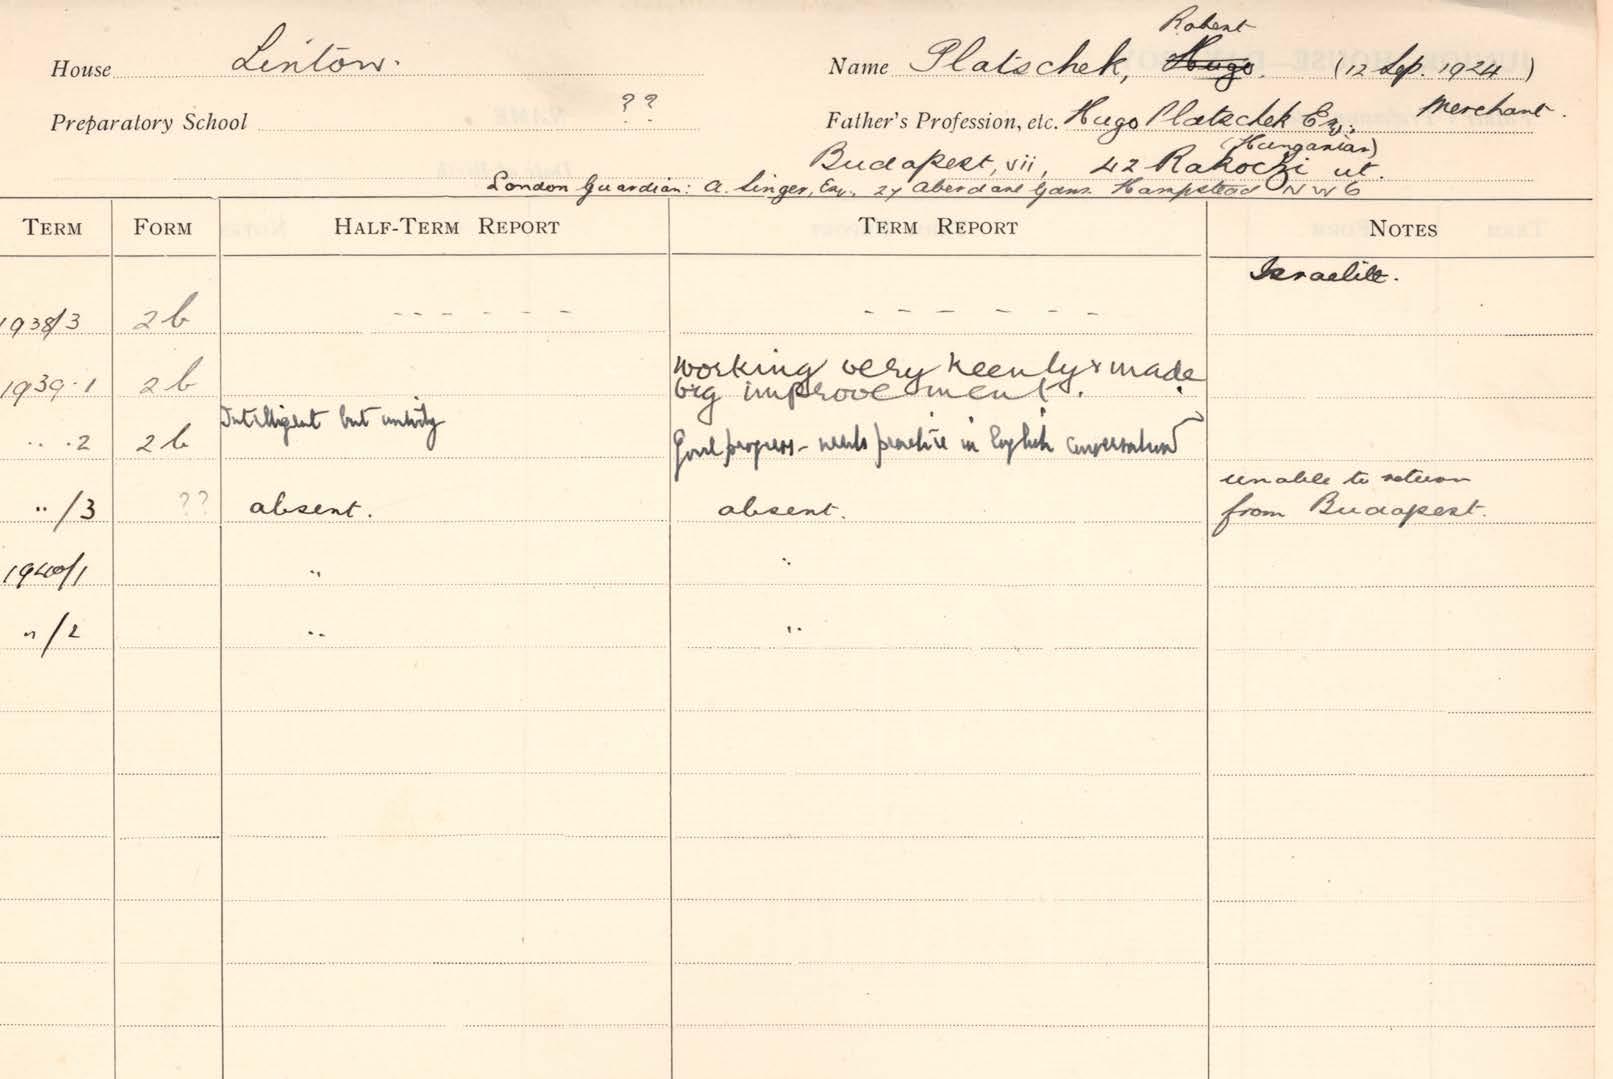 Robert
House Linton. Name Platschek, Hugo. (12 Sep. 1924)
Preparatory School ?? Father's Profession, etc. Hugo Platschek Esq., Merchant.
(Hungarian)
Budapest, vii, 42 Rakoczi ut.
London Guardian: A. Singer, Esq., 27 Aberdare Gdns. Hampstead NW6
TERM FORM HALF-TERM REPORT TERM REPORT NOTES
Israelite.
1938/3 2b - - - - - - - - - - - - -
working very keenly & made
1939.1 2b big improvement.
Intelligent but untidy
" .2 2b Good progress - needs practice in English conversation
unable to return
" /3 ?? absent. absent. from Budapest.
1940/1 " "
" /2 " "